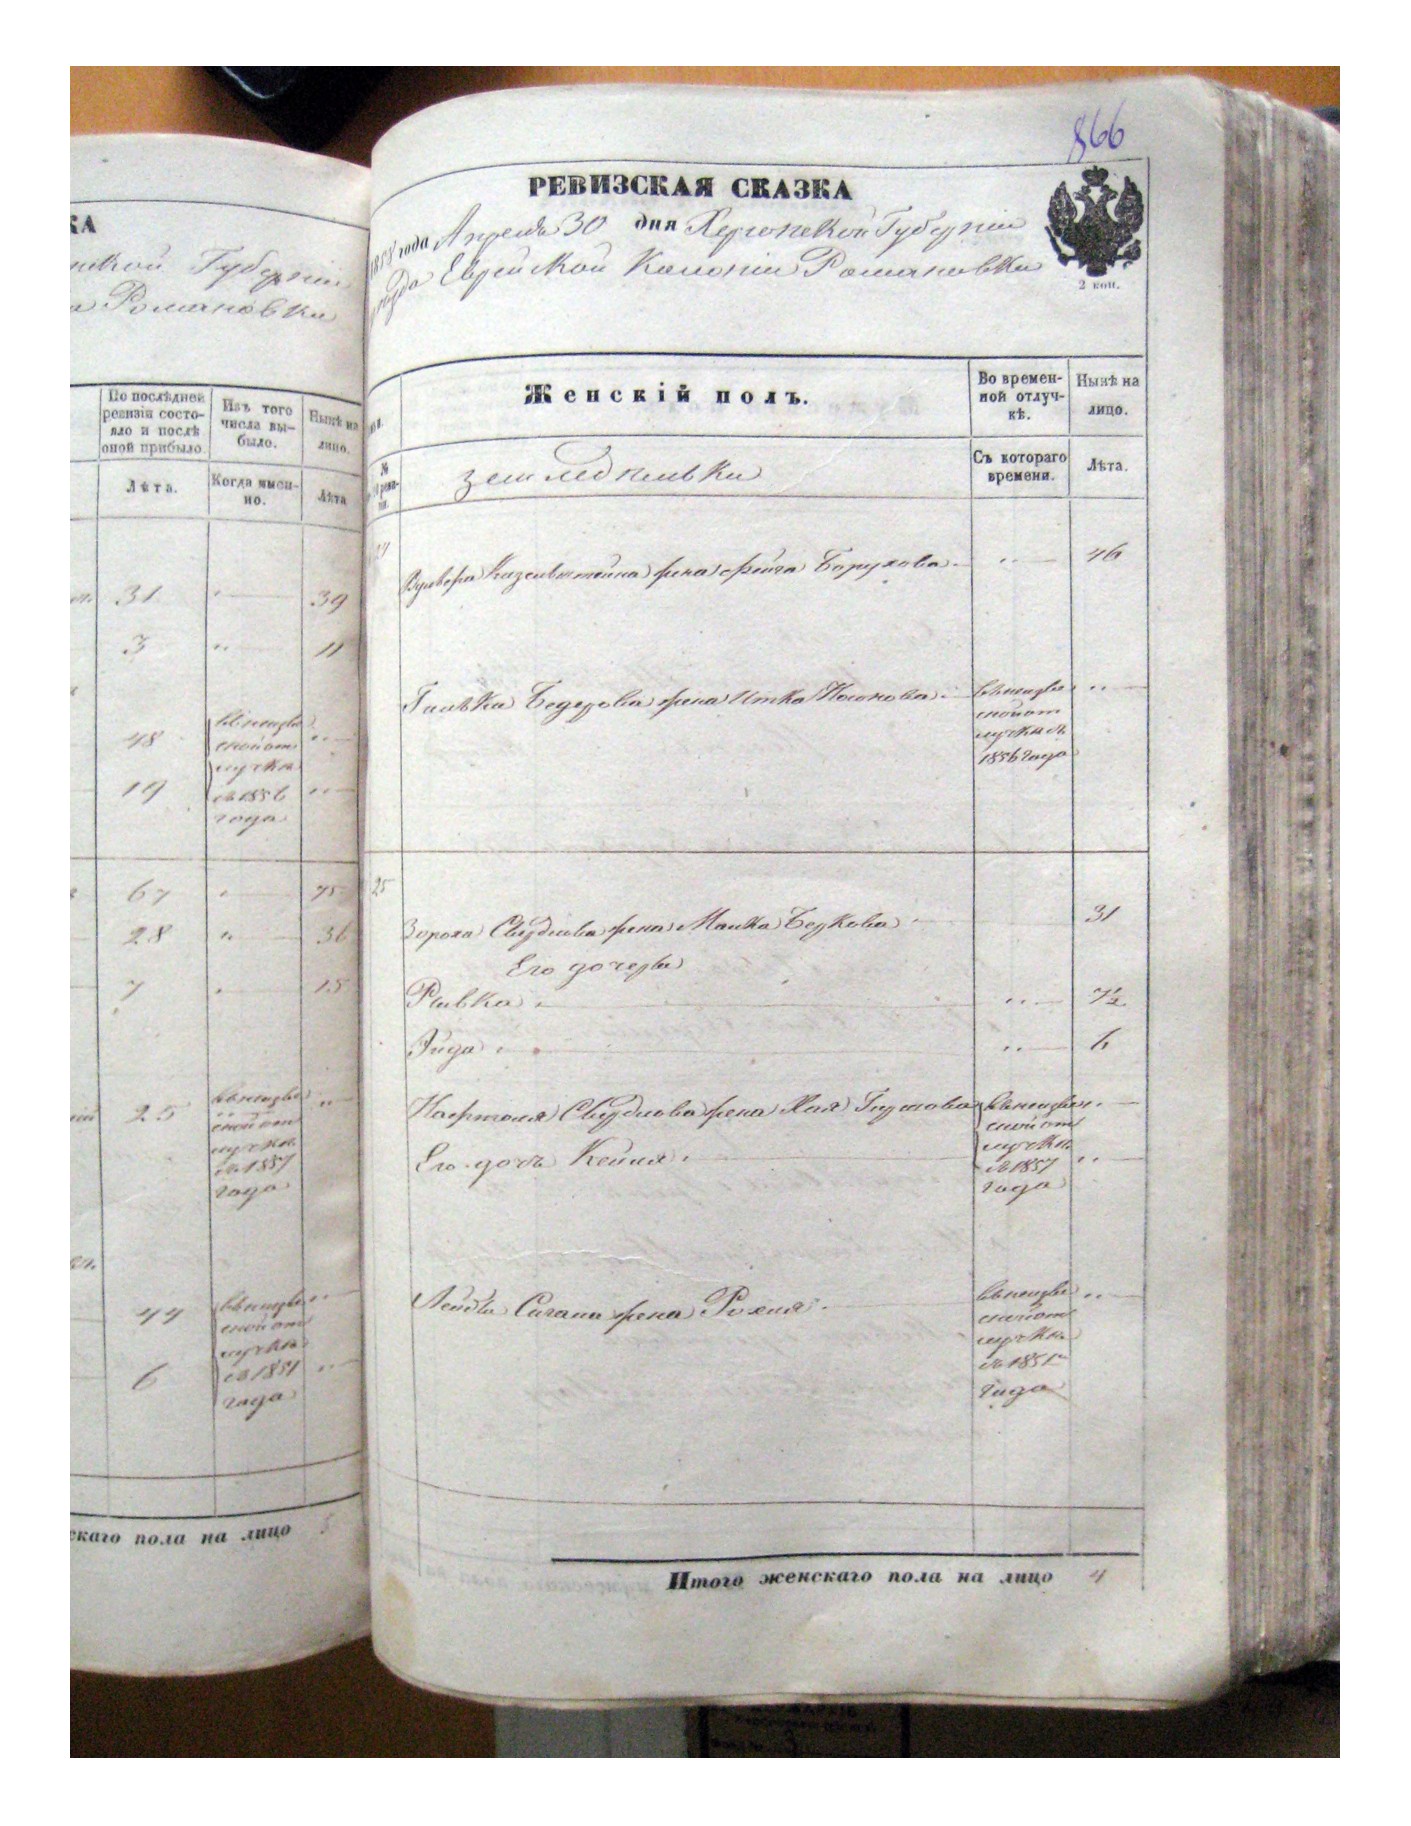 КА
Губерніи
Романовки
По послѣдней
ревизіи состо-
яло и послѣ
оной прибыло.
Изъ того
числа вы-
было.
Нынѣ на
лицо.
Лѣта.
Когда имен-
но.
Лѣта
31
39
3
11
48
въ неизвѣ
стной от
лучкѣ
съ 1856
года
19
67
75
28
36
7
15
25
въ неизвѣ
стной от
лучкѣ
съ 1857
года
44
въ неизвѣ
стной от
лучкѣ
съ 1851
года
6
скаго пола на лицо 5
866
РЕВИЗСКАЯ СКАЗКА
1858 года Апреля 30 дня Херсонской Губерніи
уезда Еврейской Колоніи Романовки
2 коп.
Женскій полъ.
Во времен-
ной отлуч-
кѣ.
Нынѣ на
лицо.
№
земледелки
Съ котораго
времени.
Лѣта.
24
Вульфа жена Фейга Борухова
46
жена Итка Носонова
въ неизвѣ
стной от
лучкѣ съ
1856 года
25
Зороха Свердлова жена Малка Беркова
31
Его дочери
Ривка
7½
Эйда
6
Нафтоля Свердлова жена Хая
въ неизвѣ
стной от
лучкѣ
съ 1857
года
Его дочь Кейля
Лейба Сагана жена Рохля
въ неизвѣ
стной от
лучкѣ
съ 1851
года
Итого женскаго пола на лицо 4